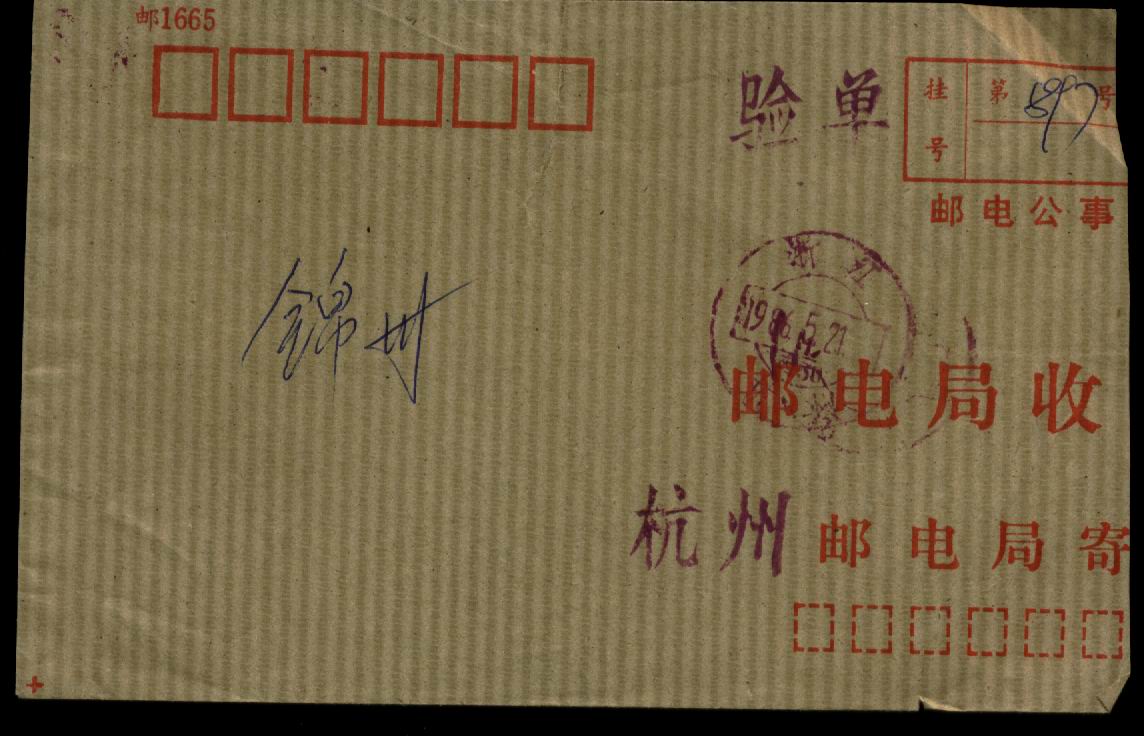 邮1665
验单
挂号 第 597 号
邮电公事
浙江
1986.5.21
錦州 邮电局收
杭州 邮电局寄